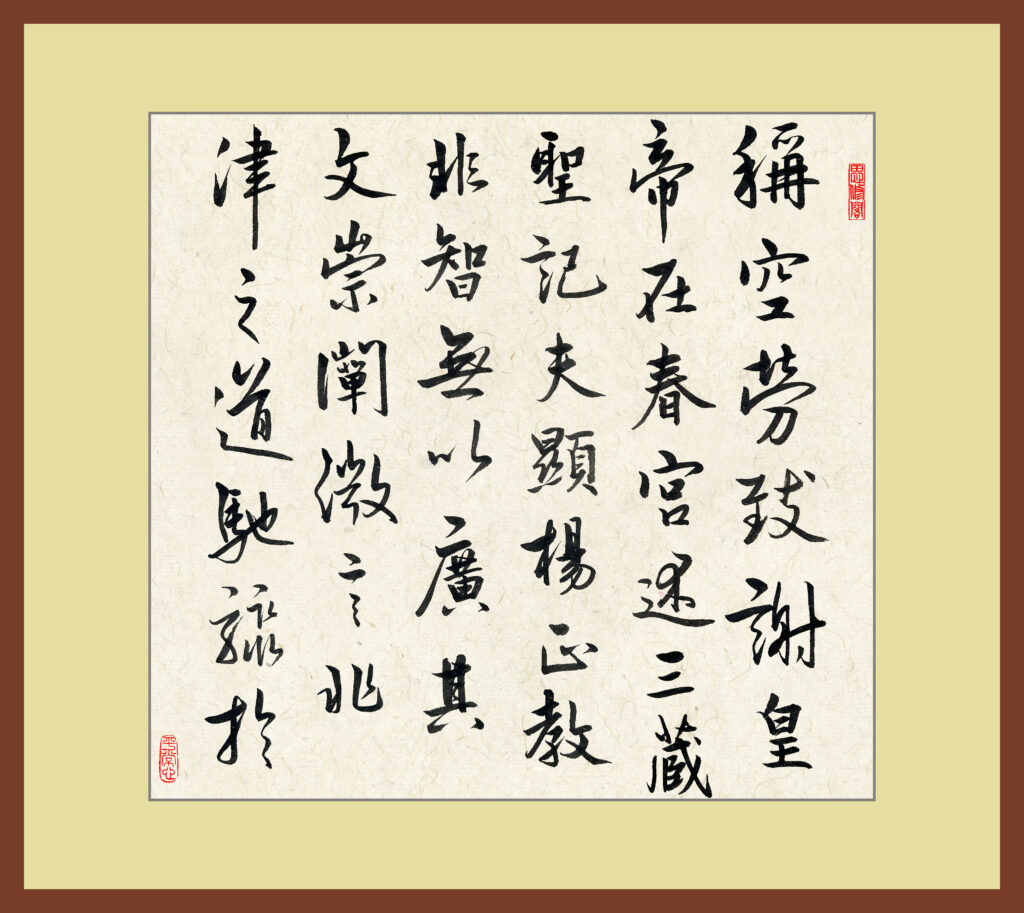 思修閣
稱空勞致謝皇
帝在春宮述三藏
聖記夫顯楊正教
非智無以廣其
文崇闡微言非
津之道馳驟於
平常心